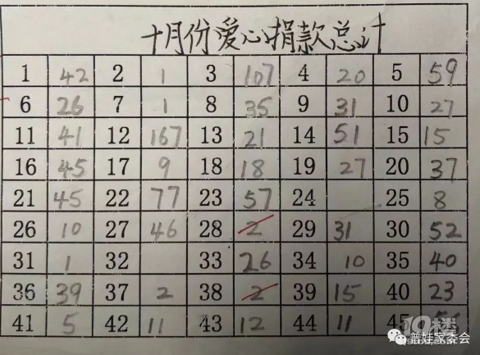 十月份爱心捐款总计
1 42 2 1 3 107 4 20 5 59
6 26 7 1 8 35 9 31 10 27
11 41 12 167 13 21 14 51 15 15
16 45 17 9 18 18 19 27 20 37
21 45 22 77 23 57 24 25 8
26 10 27 46 28 2 29 31 30 52
31 1 32 33 26 34 10 35 40
36 39 37 2 38 2 39 15 40 23
41 5 42 11 43 12 44 11 45